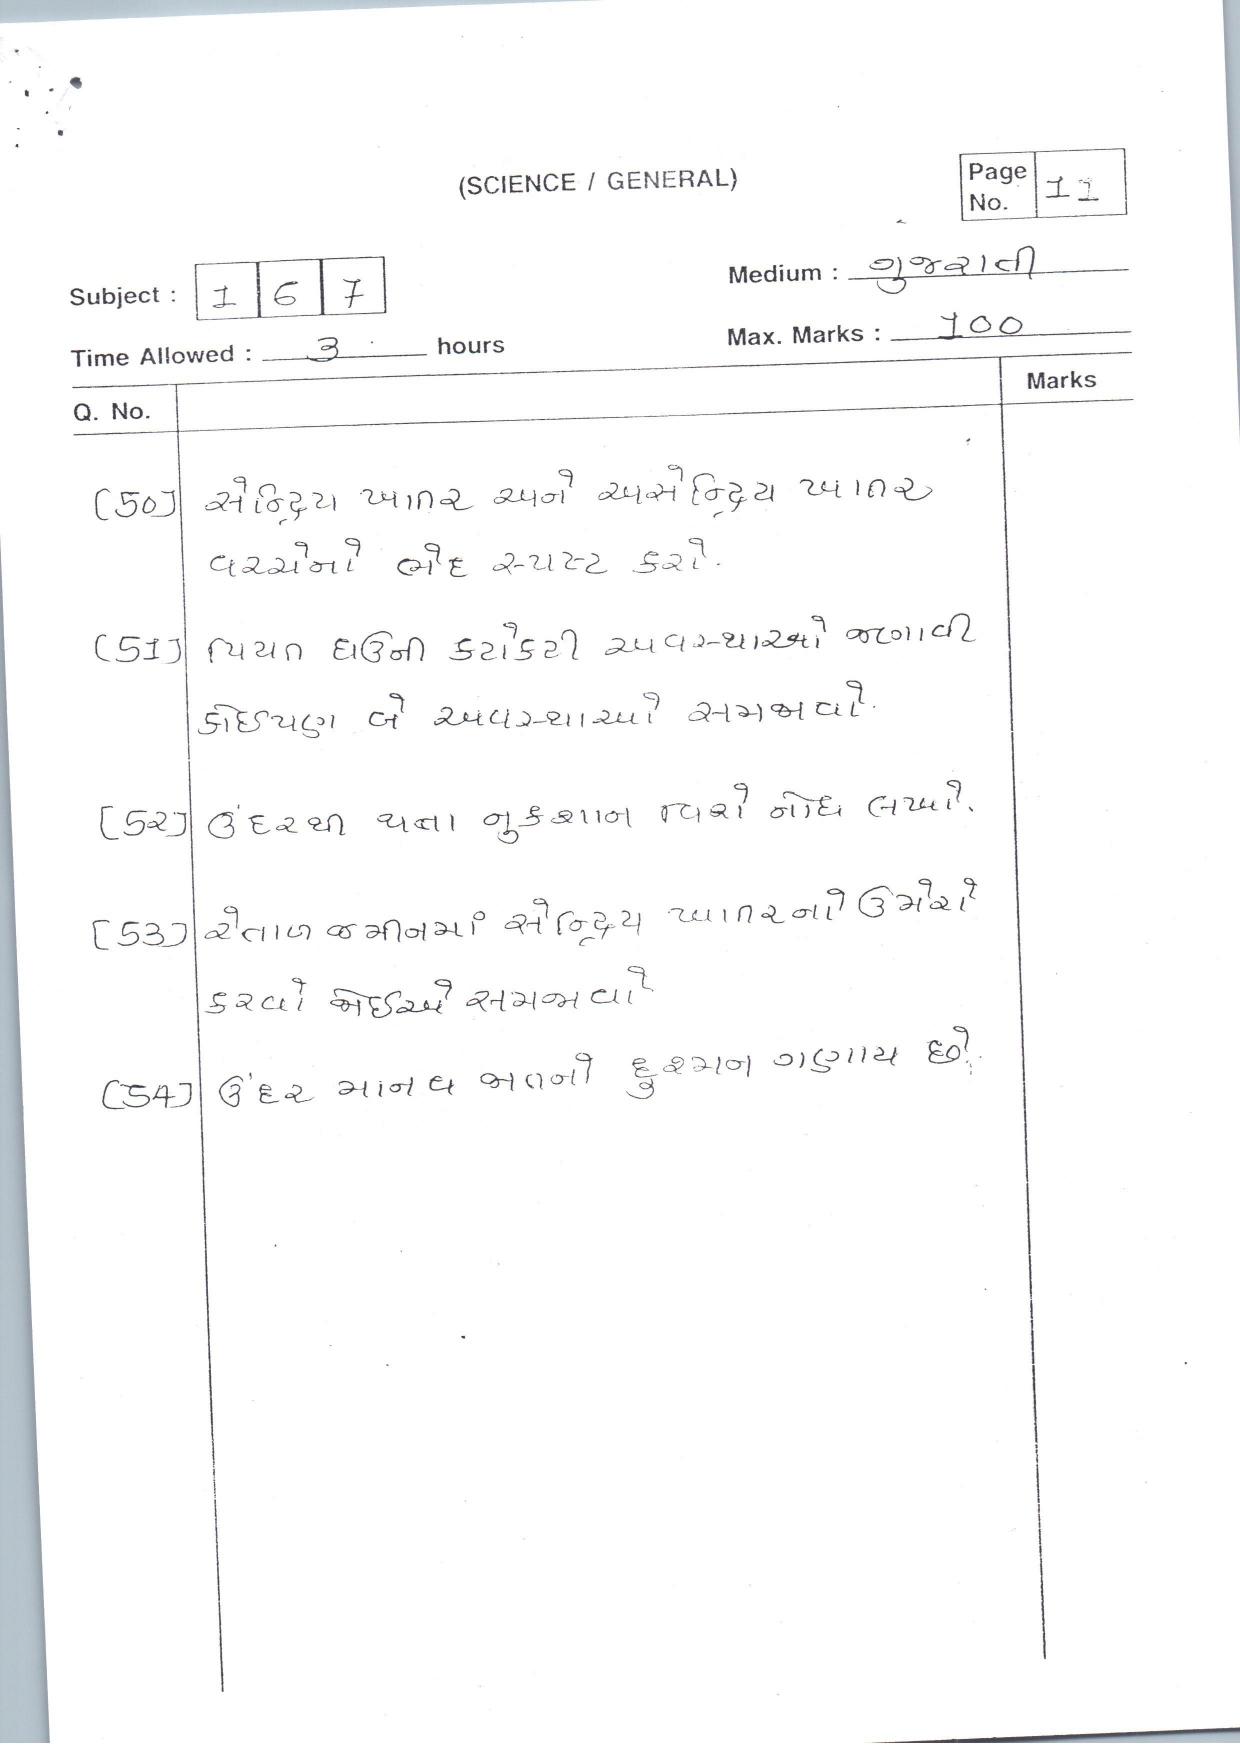 (SCIENCE / GENERAL)
Page No. 11
Subject : 1 6 7
Medium : ગુજરાતી
Time Allowed : 3 hours
Max. Marks : 100
Q. No. Marks
[50] સેન્દ્રિય ખાતર અને અસેન્દ્રિય ખાતર
વચ્ચેનો ભેદ સ્પષ્ટ કરો.
[51] પિયત ઘઉંની કટોકટી અવસ્થાઓ જણાવી
કોઈપણ બે અવસ્થાઓ સમજાવો.
[52] ઉંદરથી થતા નુકશાન વિશે નોંધ લખો.
[53] રેતાળ જમીનમાં સેન્દ્રિય ખાતરનો ઉમેરો
કરવો જોઈએ સમજાવો
[54] ઉંદર માનવ જાતનો દુશ્મન ગણાય છે.